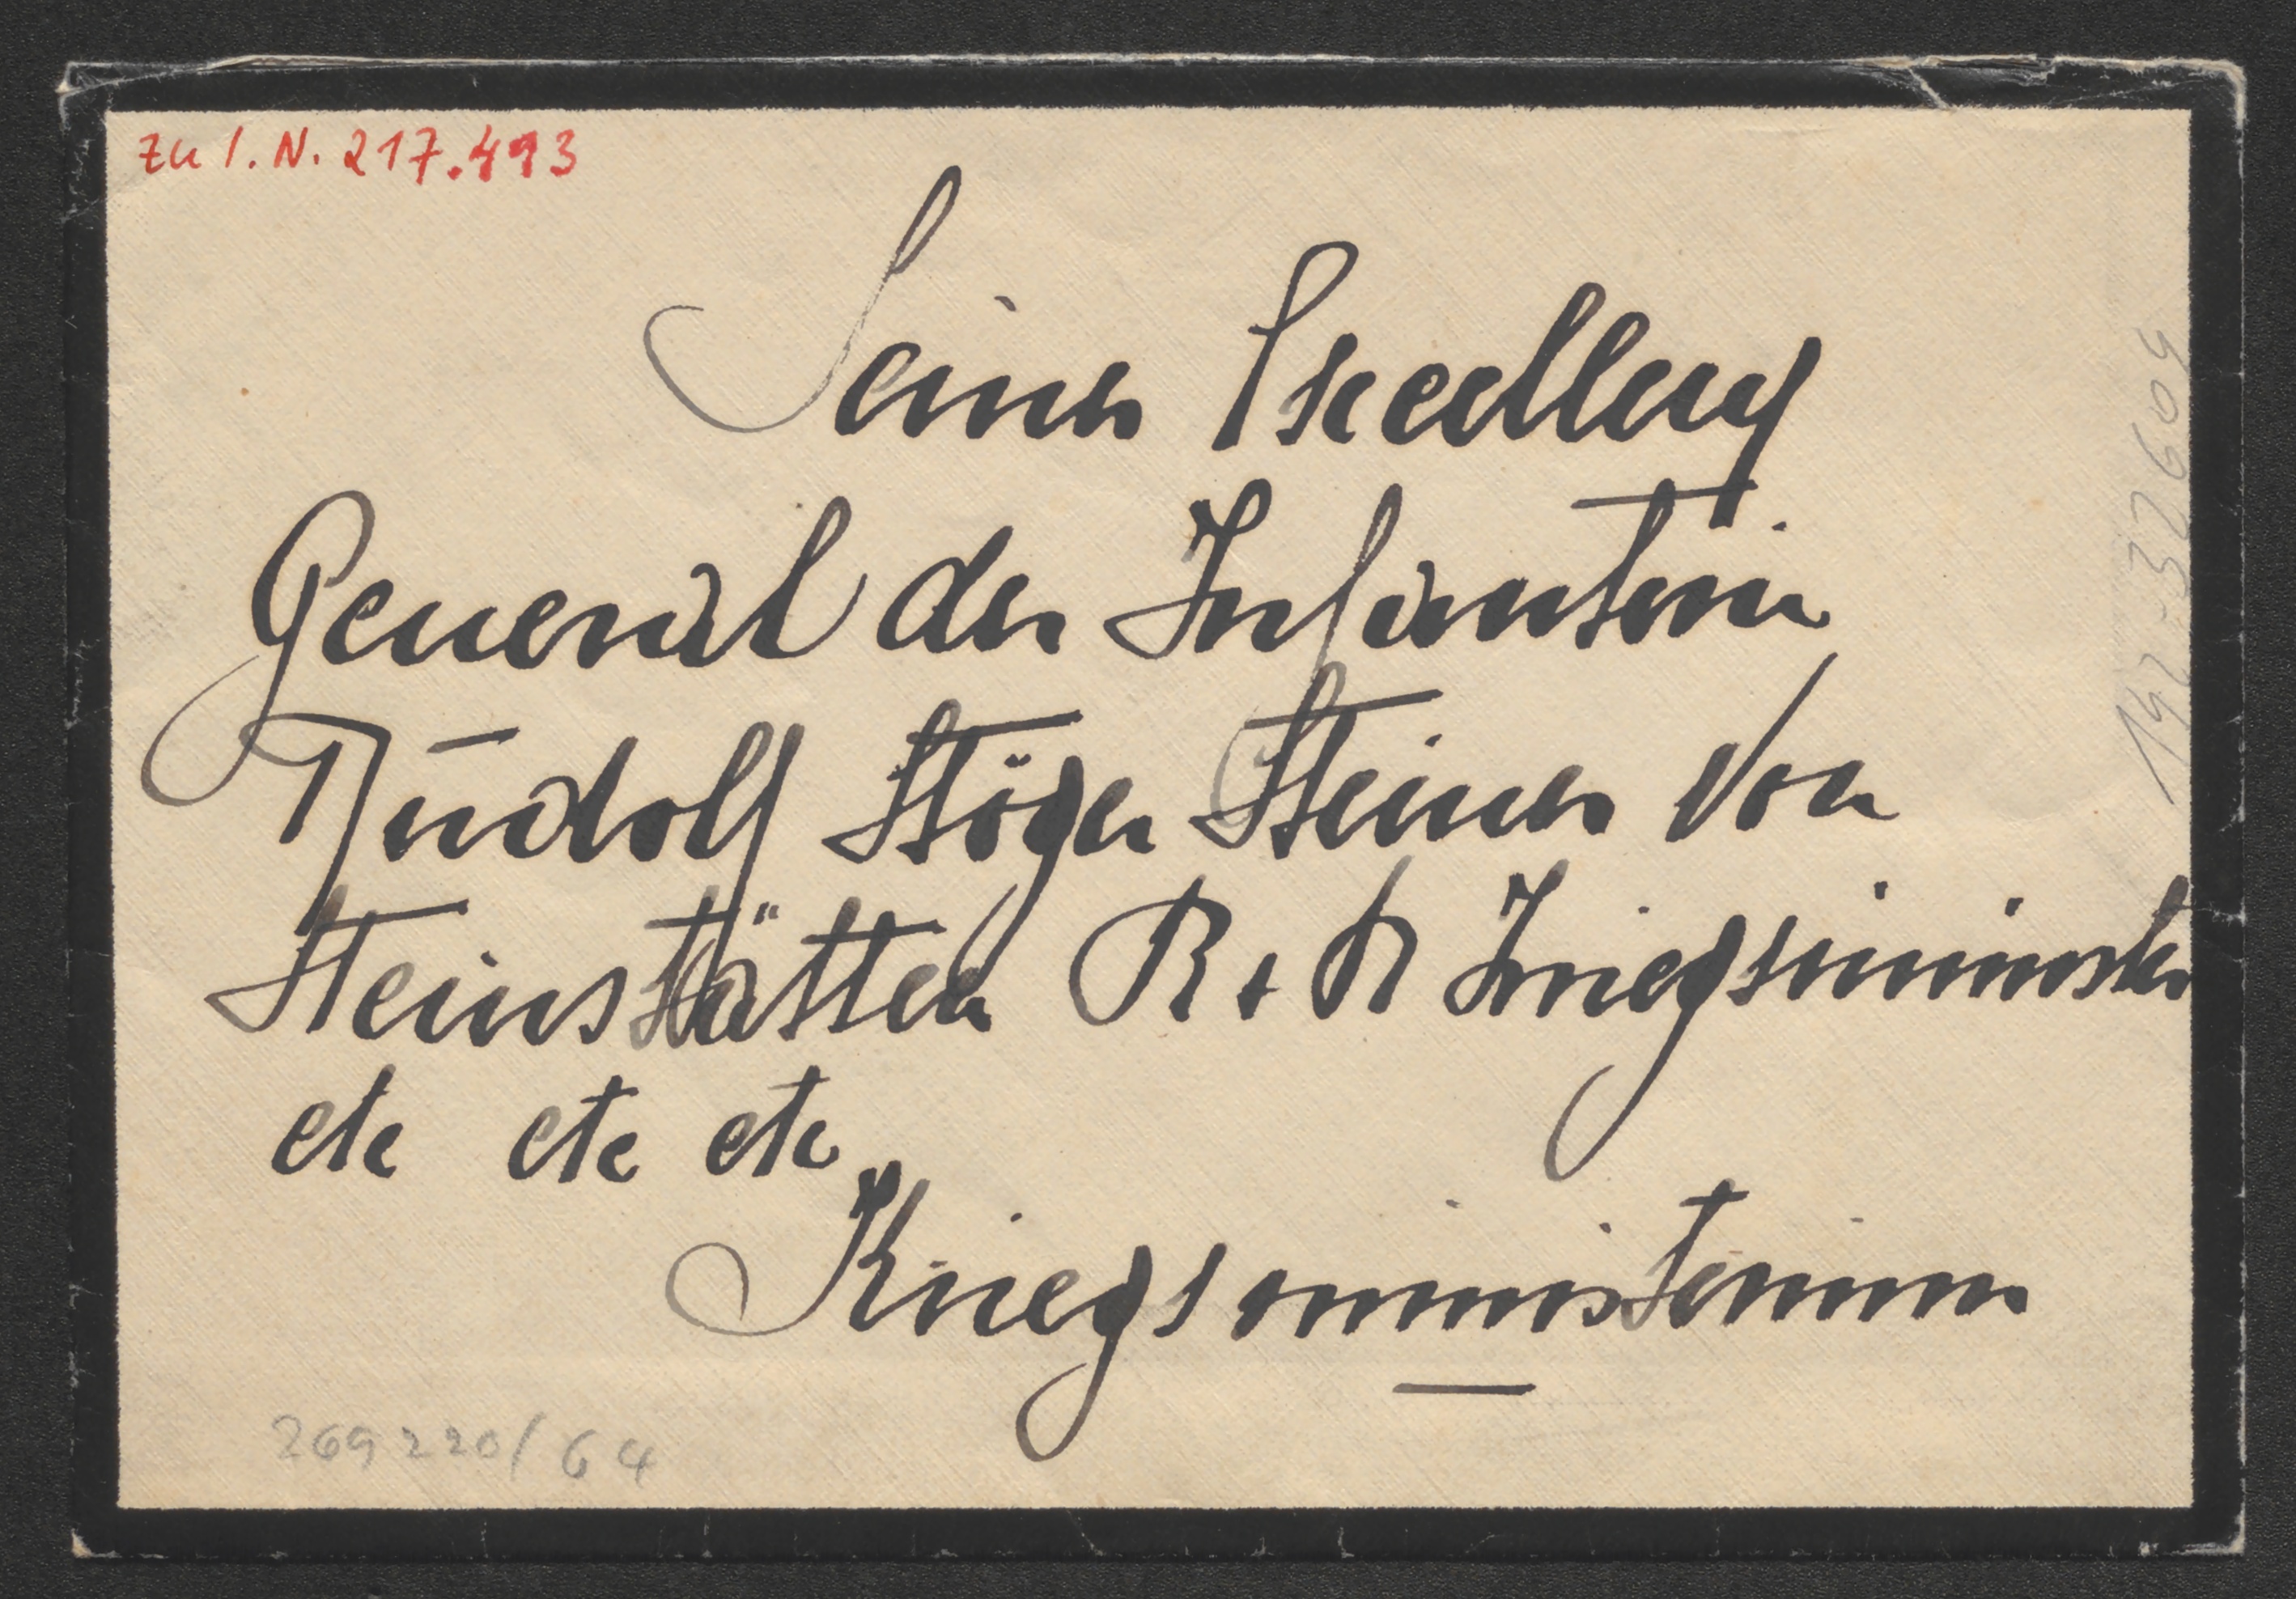 zu I. N. 217.493
Seiner Excellenz
General der Infanterie
Rudolf Stöger Steiner von
Steinstätten K + K Kriegsminister
etc etc etc
Kriegsministerium
269220/64